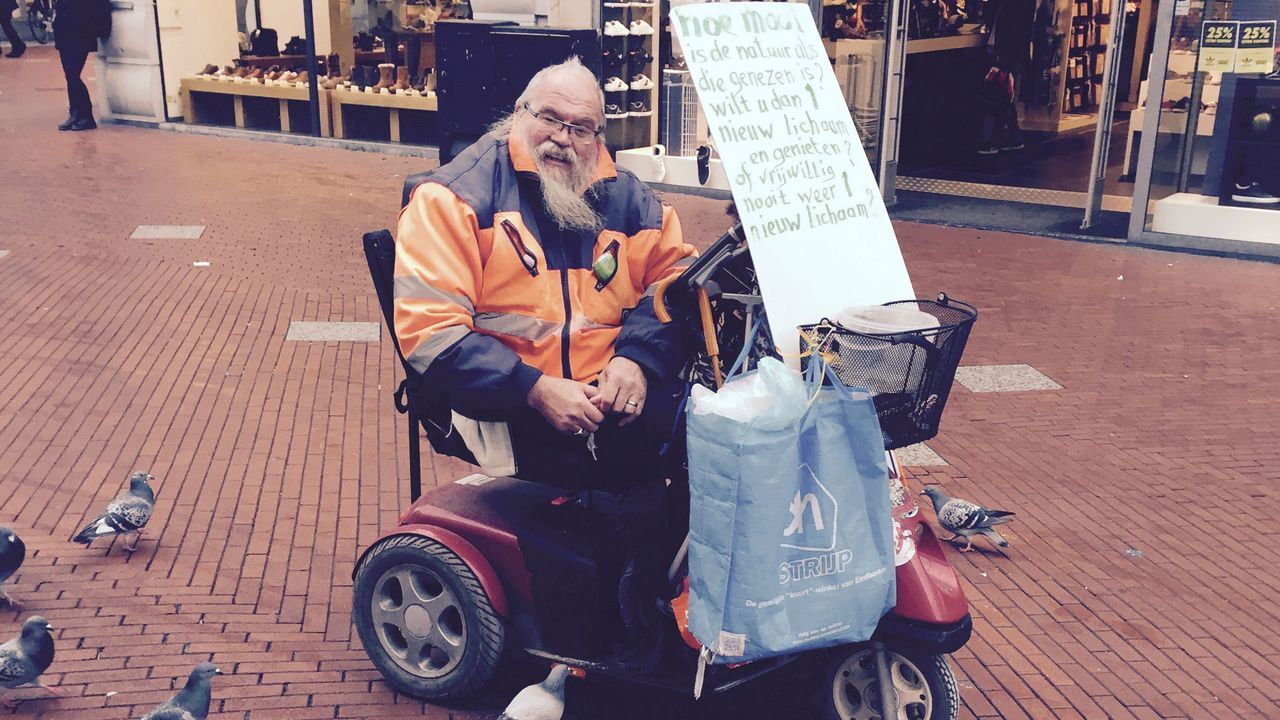 Hoe mooi
is de natuur als
die genezen is?
wilt u dan 1
nieuw lichaam
en genieten?
of vrijwillig
nooit weer 1
nieuw lichaam?
25%
25%
STRIJP
De "buurt"-winkel van Eindhoven